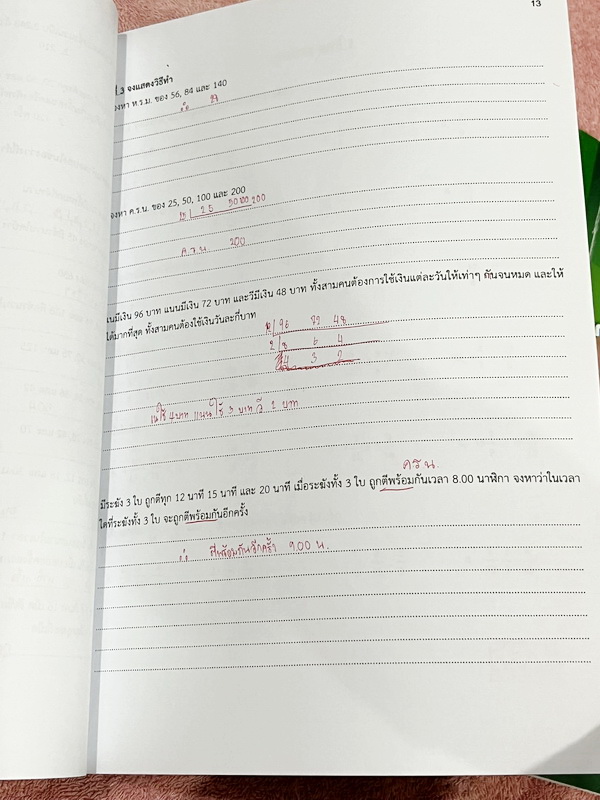 13
3 จงแสดงวิธีทำ
งหา ห.ร.ม. ของ 56, 84 และ 140
คือ
งหา ค.ร.น. ของ 25, 50, 100 และ 200
25 50 100 200
ค.ร.น. 200
นมีเงิน 96 บาท แนนมีเงิน 72 บาท และวีมีเงิน 48 บาท ทั้งสามคนต้องการใช้เงินแต่ละวันให้เท่าๆ กันจนหมด และให้
ได้มากที่สุด ทั้งสามคนต้องใช้เงินวันละกี่บาท
96 72 48
2 8 6 4
4 3 2
ใช้ 4 บาท แนน ใช้ 3 บาท วี 2 บาท
ครน.
มีระฆัง 3 ใบ ถูกตีทุก 12 นาที 15 นาที และ 20 นาที เมื่อระฆังทั้ง 3 ใบ ถูกตีพร้อมกันเวลา 8.00 นาฬิกา จงหาว่าในเวลา
ใดที่ระฆังทั้ง 3 ใบ จะถูกตีพร้อมกันอีกครั้ง
ตีพร้อมกันอีกครั้ง 9.00 น.